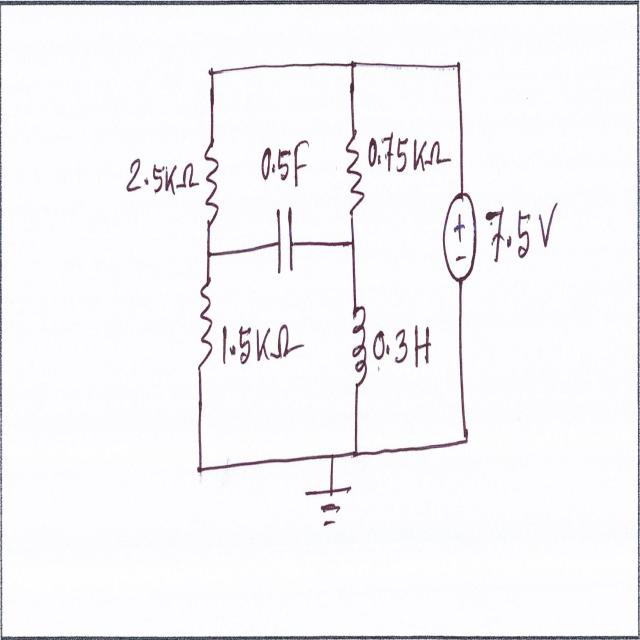 2.5KΩ
0.5F
0.75KΩ
+
-
7.5V
1.5KΩ
0.3H